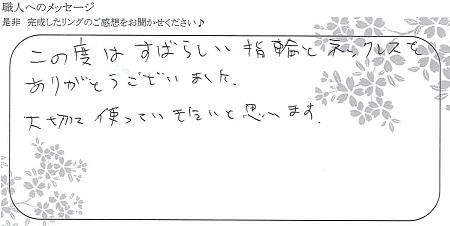 職人へのメッセージ
是非 完成したリングのご感想をお聞かせください♪
この度は すばらしい 指輪と ネックレスを
ありがとうございました.
大切に 使っていきたいと思います.